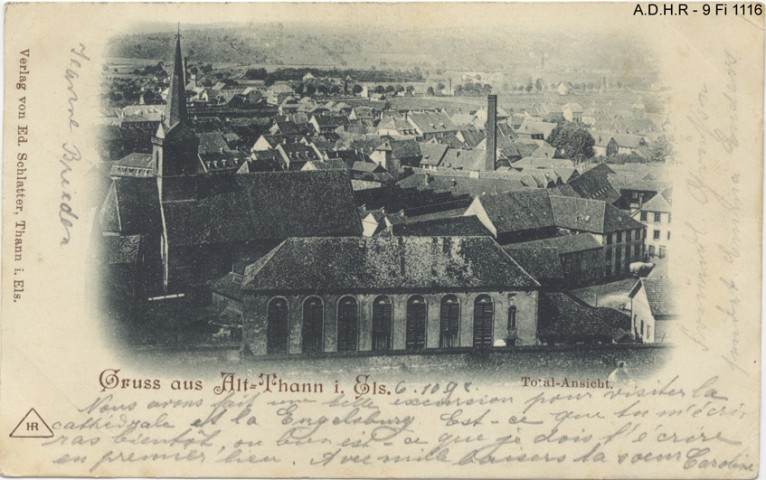 A.D.H.R - 9 Fi 1116
Verlag von Ed. Schlatter, Thann i. Els.
Jeanne
Gruss aus Alt-Thann i. Els.
Total-Ansicht.
Nous avons fait une belle excursion pour visiter la
cathédrale et la Engelsburg Est-ce que tu m'écri-
ras bientôt, ou bien est-ce que je dois t'écrire
en premier lieu. Avec mille baisers ta soeur Caroline
HR